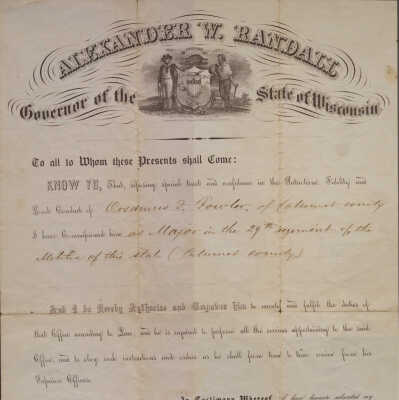 ALEXANDER W. RANDALL
Governor of the State of Wisconsin
To all to Whom these Presents shall Come:
KNOW YE, That, reposing special trust and confidence in the Patriotism, Fidelity and
Good Conduct of Orsamus D. Fowler, of Calumet county
I have Commissioned him as Major in the 29th regiment of the
Militia of this state (Calumet county)
And I do Hereby Authorize and Empower him to execute and fulfil the duties of
that Office according to Law, and he is required to perform all the services appertaining to the said
Office, and to obey such instructions and orders as he shall from time to time receive from his
Superior Officers.
In Testimony Whereof, I have hereunto subscribed my